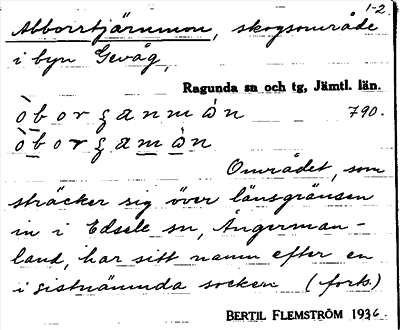 1-2.
Abborrtjärnmon, skogsområde
i byn Gevåg,
Ragunda sn och tg, Jämtl. län.
790.
Området, som
sträcker sig över länsgränsen
in i Edsele sn, Ångerman-
land, har sitt namn efter en
i sistnämnda socken (forts.)
BERTIL FLEMSTRÖM 1936.